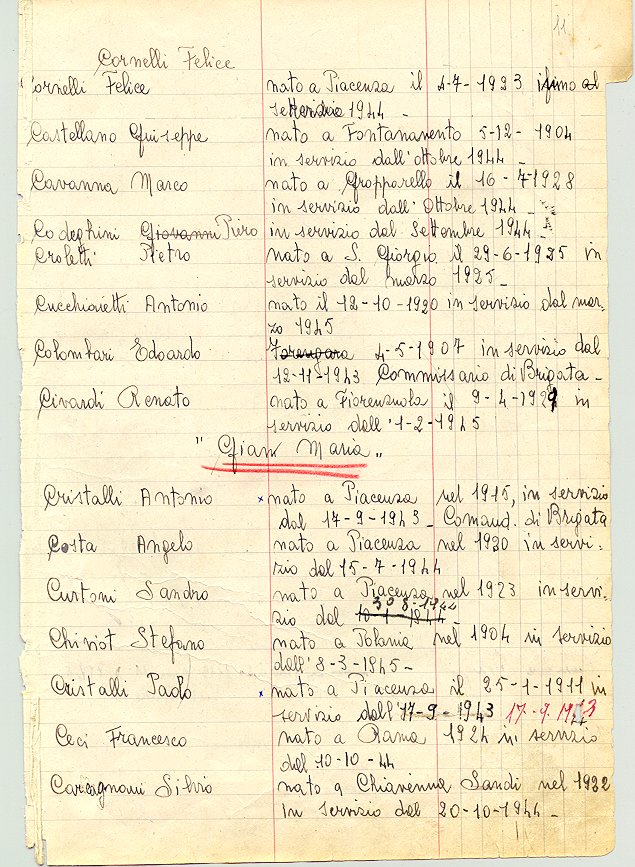 11
Cornelli Felice
Cornelli Felice nato a Piacenza il 4-7-1923 fino al
settembre 1944 -
Castellano Giuseppe nato a Fontanavento 5-12-1904
in servizio dall'ottobre 1944 -
Cavanna Marco nato a Gropparello il 16-7-1928
in servizio dall'Ottobre 1944 -
Codeghini Giovanni Piero in servizio dal Settembre 1944 -
Croletti Pietro nato a S. Giorgio il 29-6-1925 in
servizio dal marzo 1925 -
Cucchiaretti Antonio nato il 12-10-1920 in servizio dal mar-
zo 1945
Colombari Edoardo 4-5-1907 in servizio dal
12-11-1943 Commissario di Brigata -
Civardi Renato nato a Fiorenzuola il 9-4-1921 in
servizio dall'1-2-1945
"Gian Maria"
Cristalli Antonio x nato a Piacenza nel 1915, in servizio
dal 17-9-1943 - Comand. di Brigata
Costa Angelo nato a Piacenza nel 1930 in servi-
zio dal 15-7-1944
Curtoni Sandro nato a Piacenza nel 1923 in servi-
30-8-1944
zio dal
Chiviot Stefano nato a Polonia nel 1904 in servizio
dall'8-3-1945 -
Cristalli Paolo x nato a Piacenza il 25-1-1911 in
servizio dall'17-9-1943 17-9-1943
Ceci Francesco nato a Roma 1924 in servizio
dal 10-10-44
Carcagnani Silvio nato a Chiavenna Landi nel 1922
in servizio dal 20-10-1944 -